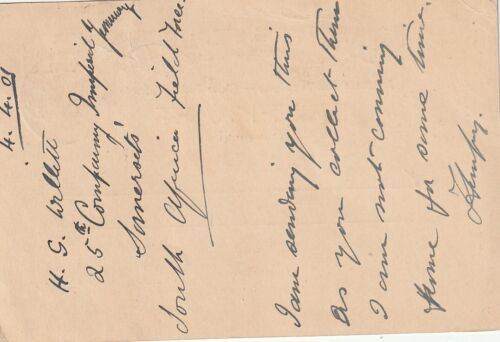 4.4.01
H. G. Willett
25th Company Imperial Yeomanry
Somersets
South African Field Force
I am sending you this
as you collect them
I am not coming
home for some time.
Humpy.